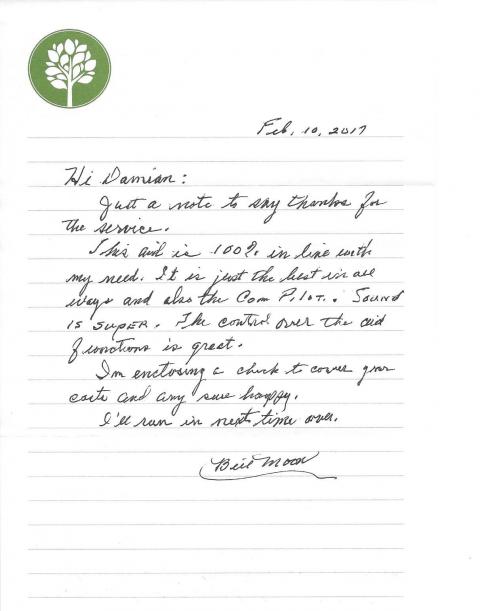 Feb. 10, 2017
Hi Damian:
Just a note to say thanks for
the service.
This aid is 100% in line with
my need. It is just the best in all
ways and also the Com Pilot. Sound
is super. The control over the aid
functions is great.
I'm enclosing a check to cover your
costs and am sure happy.
I'll run in next time over.
Bill Moon